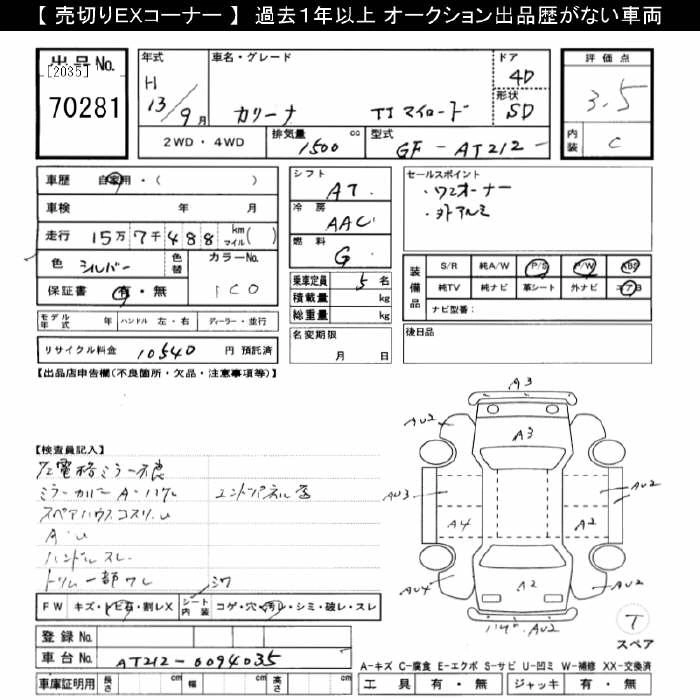 【 売切りEXコーナー 】 過去1年以上 オークション出品歴がない車両
出品No.
[2035]
70281
年式
H
13/9月
車名・グレード
カリーナ TI マイロード
ドア
4D
形状
SD
2WD・4WD
排気量 1500 cc
型式 GF-AT212-
評価点
3.5
内装 C
車歴 自家用・( )
車検 年 月
走行 15万7千488 km マイル( )
色 シルバー 色替
カラーNo. 1C0
保証書 有・無
モデル年式 年 ハンドル 左・右 ディーラー・並行
リサイクル料金 10540 円 預託済
シフト AT
冷房 AAC
燃料 G
乗車定員 5名
積載量 kg
総重量 kg
名変期限
月 日
セールスポイント
・ワンオーナー
・外アルミ
装備品
S/R 純A/W P/S P/W ABS
純TV 純ナビ 革シート 外ナビ エアB
ナビ型番:
後日品
【出品店申告欄(不良箇所・欠品・注意事項等)】
【検査員記入】
左電格ミラー不良
ミラーカバーA・ハゲ エンドパネル
スペアハウスコスリ・U
A・U
ハンドルスレ
トリム一部ワレ シワ
FW キズ・トビ石・割レX シート内装 コゲ・穴・汚レ・シミ・破レ・スレ
登録No.
車台No. AT212-0094035
車庫証明用 長さ cm 幅 cm 高さ cm
A3
AU2
A3
AU2
AU3
A4
A2
AU2
AU4
A2
AU2
AU2
T
スペア
A-キズ C-腐食 E-エクボ S-サビ U-凹ミ W-補修 XX-交換済
工具 有・無 ジャッキ 有・無